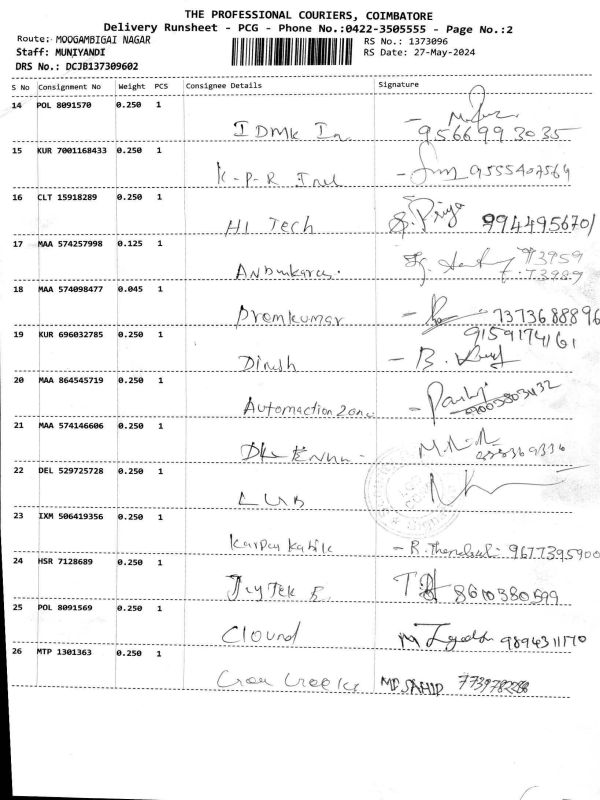 THE PROFESSIONAL COURIERS, COIMBATORE
Delivery Runsheet - PCG - Phone No.:0422-3505555 - Page No.:2
Route: MOOGAMBIGAI NAGAR
RS No.: 1373096
Staff: MUNIYANDI
RS Date: 27-May-2024
DRS No.: DCJB137309602
S No Consignment No Weight PCS Consignee Details Signature
14 POL 8091570 0.250 1
IDMK In 9566993035
15 KUR 7001168433 0.250 1
K-P-R 9555407564
16 CLT 15918289 0.250 1
HI Tech S. Priya 9944956701
17 MAA 574257998 0.125 1
18 MAA 574098477 0.045 1
Premkumar 7373688896
19 KUR 696032785 0.250 1
9159174161
Dinesh - B.
20 MAA 864545719 0.250 1
Automaction Zone
21 MAA 574146606 0.250 1
22 DEL 529725728 0.250 1
LUB
23 IXM 506419356 0.250 1
- R. 9677395900
24 HSR 7128689 0.250 1
8610380599
25 POL 8091569 0.250 1
Clound 9894311170
26 MTP 1301363 0.250 1
MD SAHID